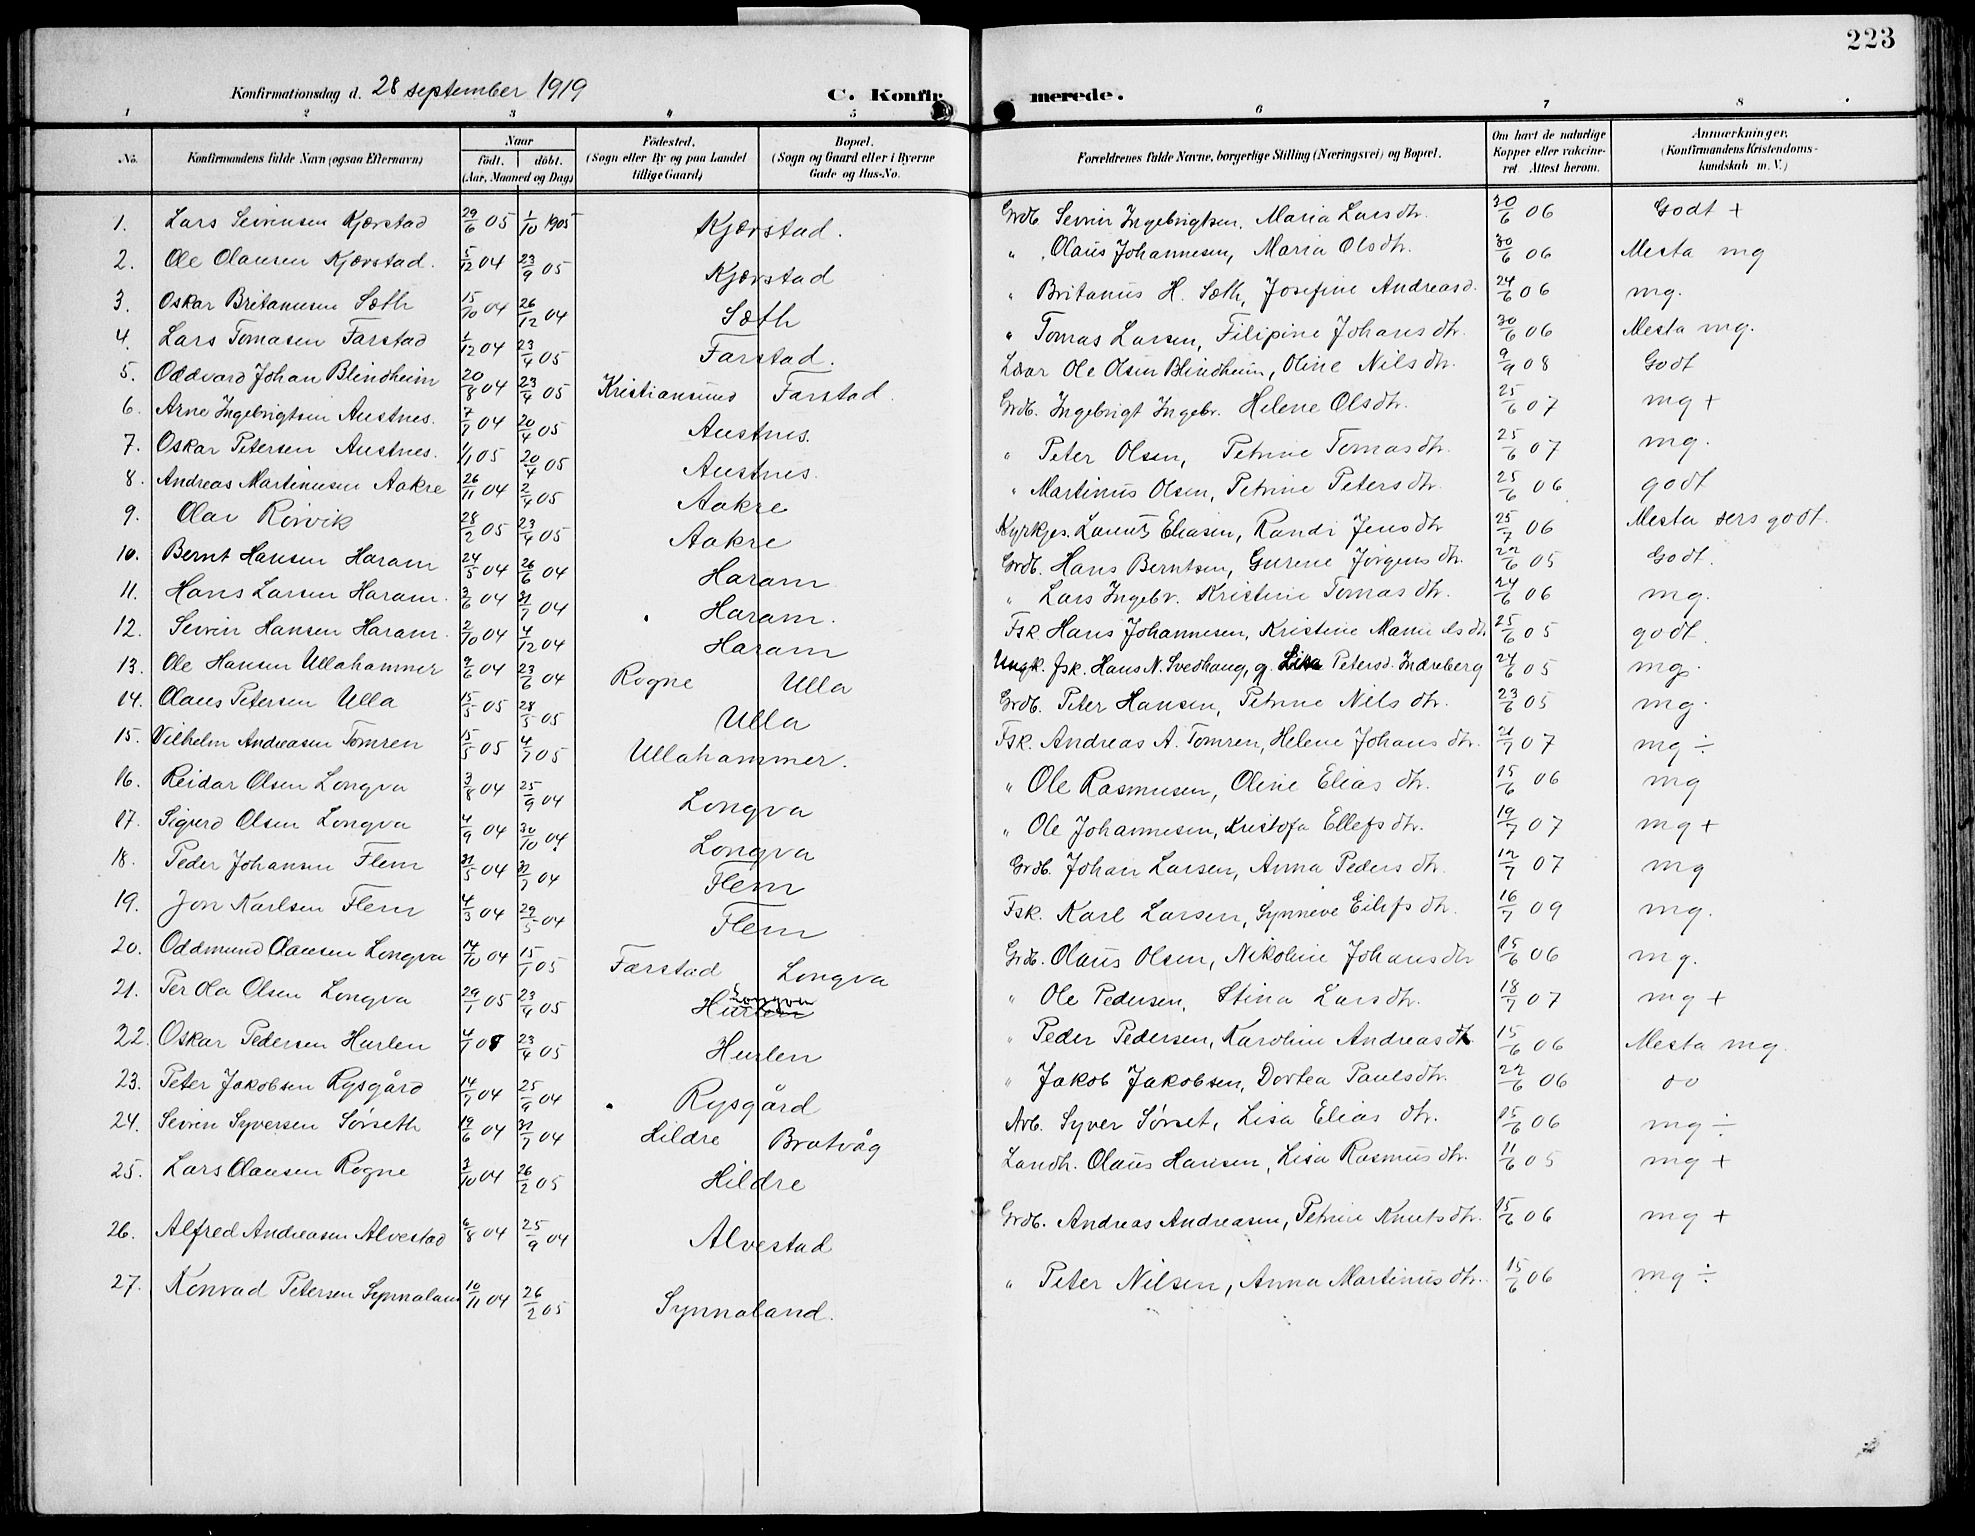 223
Konfirmationsdag d. 28 september 1919
C. Konfirmerede.
1 2 3 4 5 6 7 8
No. Konfirmandens fulde Navn (ogsaa Efternavn) Naar født. døbt. (Aar, Maaned og Dag) Fødested. (Sogn eller By og paa Landet tillige Gaard) Bopæl. (Sogn og Gaard eller i Byerne Gade og Hus-No. Forældrenes fulde Navne, borgerlige Stilling (Næringsvei) og Bopæl. Om havt de naturlige Kopper eller vakcineret. Attest herom. Anmærkninger. (Konfirmandens Kristendomskundskab m. V.)
1. Lars Seversen Kjærstad 29/6 05 1/10 1905 Kjærstad. Grdb. Sevrin Ingebrigtsen, Maria Larsdtr. 30/6 06 Godt +
2. Ole Olausen Kjærstad. 5/12 04 23/9 05 Kjærstad " Olaus Johannesen, Maria Olsdtr. 30/6 06 Mesta mg
3. Oskar Britanusen Sæth 15/10 04 26/12 04 Sæth " Britanus H. Sæth, Josefine Andreasd. 24/6 06 mg.
4. Lars Tomasen Farstad 1/12 04 23/4 05 Farstad. " Tomas Larsen, Filipine Johansdtr. 30/6 06 Mesta mg.
5. Oddvard Johan Blindheim 20/8 04 23/4 05 Kristiansund Farstad. Lærar Ole Olsen Blindheim, Oline Nilsdtr. 9/9 08 Godt
6. Arne Ingebrigtsen Austnes. 7/7 04 20/4 05 Austnes. Grdb. Ingebrigt Ingebr. Helene Olsdtr. 25/6 07 mg +
7. Oskar Petersen Austnes. 1/1 05 20/4 05 Austnes. " Peter Olsen, Petrine Tomasdtr. 25/6 07 mg.
8. Andreas Martinusen Aakre 26/11 04 2/4 05 Aakre " Martinus Olsen, Petrine Petersdtr. 25/6 06 godt
9. Olav Rörvik 28/2 05 23/4 05 Aakre Kyrkjes. Laurits Eliasen, Randi Jensdtr 25/7 06 Mesta sers godt.
10. Bernt Hansen Haram 24/5 04 26/6 04 Haram Grdb. Hans Berntsen, Gurine Jörgensdtr. 22/6 05 Godt.
11. Hans Larsen Haram. 3/6 04 31/7 04 Haram. " Lars Ingebr. Kristine Tomasdtr. 24/6 06 mg.
12. Sevrin Hansen Haram. 2/10 04 4/12 04 Haram Fsk. Hans Johannesen, Kristine Manuelsdtr 25/6 05 godt
13. Ole Hansen Ullahammer 9/6 04 23/6 04 Rogne Ulla Ungk. fsk. Hans N. Svedhaug, g. Lisa Petersd. Indreberg 24/6 05 mg.
14. Olaus Petersen Ulla 15/5 05 28/5 05 Ulla Grdb. Peter Hansen, Petrine Nilsdtr. 23/6 05 mg.
15. Vilhelm Andreasen Tomren 15/5 05 4/7 05 Ullahammer. Fsk. Andreas A. Tomren, Helene Johansdtr. 21/7 07 mg ÷
16. Reidar Olsen Longva 3/8 04 25/9 04 Longva " Ole Rasmusen, Oline Eliasdtr. 15/6 06 mg
17. Sigurd Olsen Longva 4/9 04 30/10 04 Longva " Ole Johannesen, Kristofa Ellefsdtr. 19/7 07 mg +
18. Peder Johansen Flem 31/5 04 31/7 04 Flem Grdb. Johan Larsen, Anna Pedersdtr. 12/7 07 mg
19. Jon Karlsen Flem 4/3 04 29/5 04 Flem Fsk. Karl Larsen, Synneve Eilefsdtr. 16/7 09 mg.
20. Oddmund Olausen Longva 14/10 04 15/1 05 Farstad Longva Grdb. Olaus Olsen, Nikoline Johansdtr 15/6 06 mg.
21. Per Ola Olsen Longva 29/1 05 23/4 05 Hurlen Longva " Ole Pedersen, Stina Larsdtr. 18/7 07 mg +
22. Oskar Pedersen Hurlen 4/1 05 23/4 05 Hurlen " Peder Pedersen, Karoline Andreasdtr 15/6 06 Mesta mg.
23. Peter Jakobsen Rysgård 14/7 04 25/9 04 Rysgård " Jakob Jakobsen, Dortea Paulsdtr. 22/6 06 do
24. Sevrin Syversen Sørseth 19/6 04 31/7 04 Hildre Bratvåg Arb. Syver Sørset, Lisa Eliasdtr. 15/6 06 mg ÷
25. Lars Olausen Rogne 3/10 04 26/2 05 Hildre Landh. Olaus Hansen, Lisa Rasmusdtr. 11/6 05 mg +
26. Alfred Andreasen Alvestad 6/8 04 25/9 04 Alvestad Grdb. Andreas Andreasen, Petrine Knutsdtr. 15/6 06 mg +
27. Konrad Petersen Synnaland 10/11 04 26/2 05 Synnaland. " Peter Nilsen, Anna Martinusdtr. 15/6 06 mg ÷